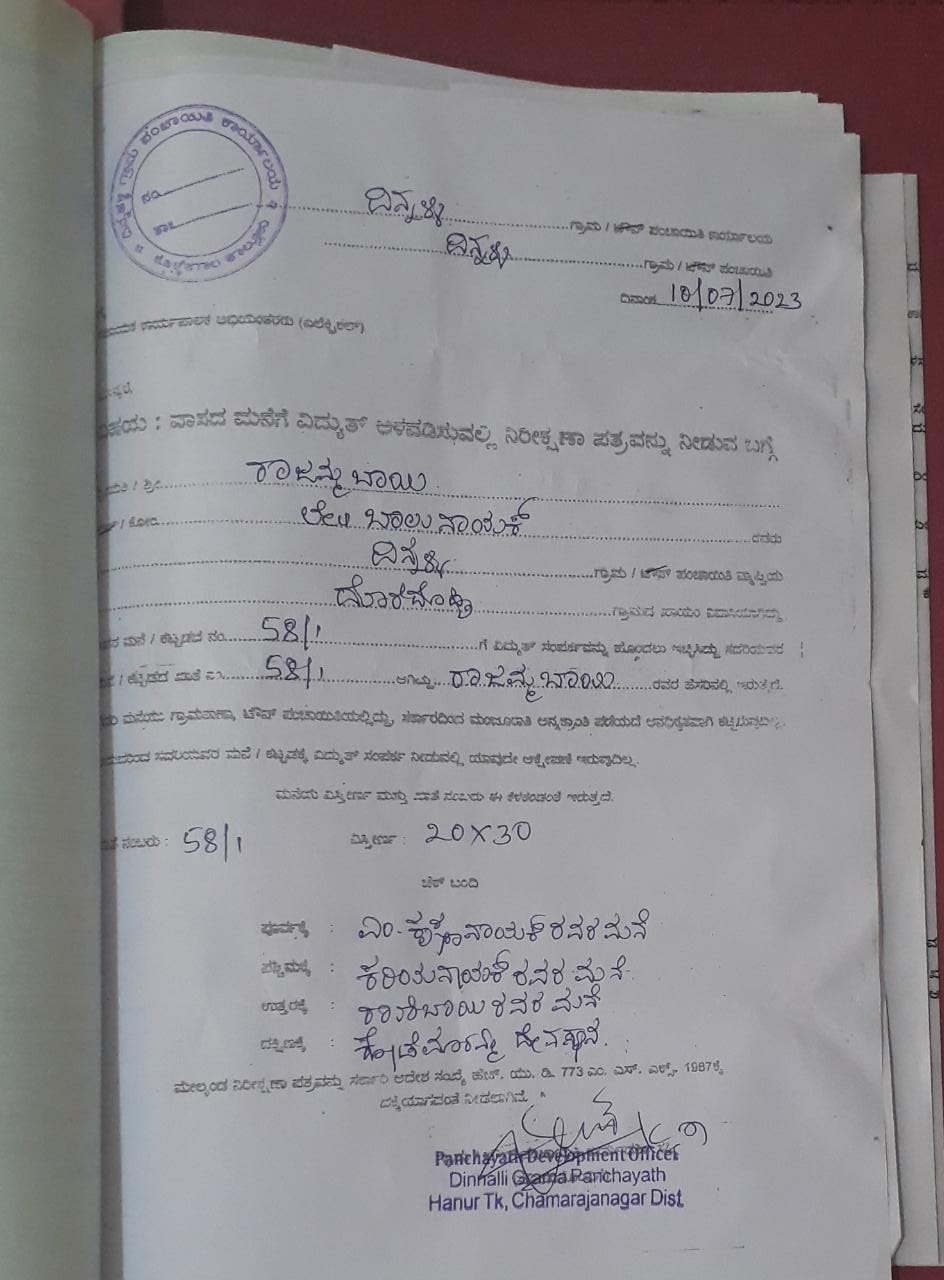 ಗ್ರಾಮ ಪಂಚಾಯಿತಿ ಕಾರ್ಯಾಲಯ
ನಂ.
ತಾ.
ದಿನ್ನಳ್ಳಿ ಗ್ರಾಮ / ಟೌನ್ ಪಂಚಾಯಿತಿ ಕಾರ್ಯಾಲಯ
ದಿನ್ನಳ್ಳಿ ಗ್ರಾಮ / ಟೌನ್ ಪಂಚಾಯಿತಿ
ದಿನಾಂಕ 18/07/2023
ಕಾರ್ಯಪಾಲಕ ಅಭಿಯಂತರರು (ಎಲೆಕ್ಟ್ರಿಕಲ್)
ವಾಸದ ಮನೆಗೆ ವಿದ್ಯುತ್ ಅಳವಡಿಸುವಲ್ಲಿ ನಿರೀಕ್ಷಣಾ ಪತ್ರವನ್ನು ನೀಡುವ ಬಗ್ಗೆ
/ ಶ್ರೀ ರಾಜಮ್ಮ ಬಾಯಿ
/ ಕೋಂ ಲೇ|| ಬಾಲುನಾಯಕ್ ರವರು
ದಿನ್ನಳ್ಳಿ ಗ್ರಾಮ / ಟೌನ್ ಪಂಚಾಯಿತಿ ವ್ಯಾಪ್ತಿಯ
ಗ್ರಾಮದ ಸಾಯಂ
ಮನೆ / ಕಟ್ಟಡದ ನಂ. 58/1 ಗೆ ವಿದ್ಯುತ್ ಸಂಪರ್ಕವನ್ನು ಹೊಂದಲು ಇಚ್ಛಿಸಿದ್ದು ಸದರಿಯವರ
/ ಕಟ್ಟಡದ ಖಾತೆ ನಂ. 58/1 ಆಗಿದ್ದು ರಾಜಮ್ಮ ಬಾಯಿ ರವರ ಹೆಸರಿನಲ್ಲಿ ಇರುತ್ತದೆ.
ಮನೆಯು ಗ್ರಾಮಠಾಣಾ, ಟೌನ್ ಪಂಚಾಯಿತಿಯಲ್ಲಿದ್ದು, ಸರ್ಕಾರದಿಂದ ಮಂಜೂರಾತಿ
ಸದರಿಯವರ ಮನೆ / ಕಟ್ಟಡಕ್ಕೆ ವಿದ್ಯುತ್ ಸಂಪರ್ಕ ನೀಡುವಲ್ಲಿ ಯಾವುದೇ ಆಕ್ಷೇಪಣೆ ಇರುವುದಿಲ್ಲ.
ಮನೆಯ ವಿಸ್ತೀರ್ಣ ಮತ್ತು ಖಾತೆ ನಂಬರು ಈ ಕೆಳಕಂಡಂತೆ ಇರುತ್ತದೆ.
ನಂಬರು : 58/1 ವಿಸ್ತೀರ್ಣ : 20X30
ಚೆಕ್ ಬಂದಿ
ಪೂರ್ವಕ್ಕೆ : ಎಂ. ಕೃಷ್ಣನಾಯಕ್ ರವರ ಮನೆ
ಪಶ್ಚಿಮಕ್ಕೆ : ಕರಿಯನಾಯಕ್ ರವರ ಮನೆ
ಉತ್ತರಕ್ಕೆ : ರವರ ಮನೆ
ದಕ್ಷಿಣಕ್ಕೆ : ದೇವಸ್ಥಾನ.
ಮೇಲ್ಕಂಡ ನಿರೀಕ್ಷಣಾ ಪತ್ರವನ್ನು ಸರ್ಕಾರಿ ಆದೇಶ ಸಂಖ್ಯೆ ಹೆಚ್. ಯು. ಡಿ. 773 ಎಂ. ಎನ್. ಎಕ್ಸ್. 1987ಕ್ಕೆ
ನೀಡಲಾಗಿದೆ.
Panchayath Development Officer
Dinnalli Grama Panchayath
Hanur Tk, Chamarajanagar Dist